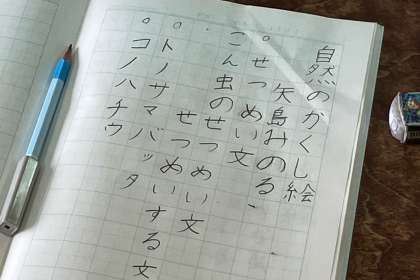 自然のかくし絵
矢島みのる
。せつめい文
こん虫のせつめい文
せつめいする文
。トノサマバッタ
。コノハチウ